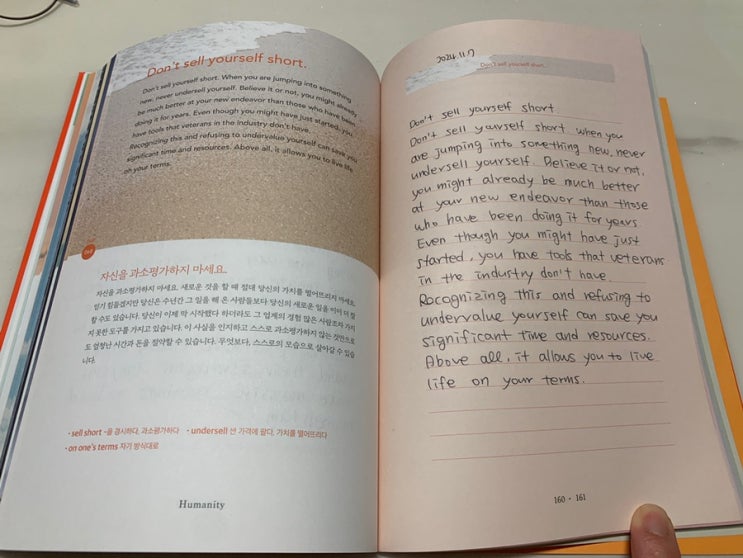 Don't sell yourself short.
Don't sell yourself short. When you are jumping into something
new, never undersell yourself. Believe it or not, you might already
be much better at your new endeavor than those who have been
doing it for years. Even though you might have just started, you
have tools that veterans in the industry don't have.
Recognizing this and refusing to undervalue yourself can save you
significant time and resources. Above all, is allows you to live life
on your terms.
자신을 과소평가하지 마세요.
자신을 과소평가하지 마세요. 새로운 것을 할 때 절대 당신의 가치를 떨어뜨리지 마세요.
믿기 힘들겠지만 당신은 수년간 그 일을 해 온 사람들보다 당신의 새로운 일을 이미 더 잘
할 수도 있습니다. 당신이 이제 막 시작했다 하더라도 그 업계의 경험 많은 사람조차 가지
지 못한 도구를 가지고 있습니다. 이 사실을 인지하고 스스로 과소평가하지 않는 것만으로
도 엄청난 시간과 돈을 절약할 수 있습니다. 무엇보다, 스스로의 모습으로 살아갈 수 있습
니다.
• sell short ~을 경시하다, 과소평가하다 • undersell 싼 가격에 팔다, 가치를 떨어뜨리다
• on one's terms 자기 방식대로
Humanity
2024.11.7
Don't sell yourself short.
Don't sell yourself short
Don't sell yourself short when you
are jumping into something new, never
undersell yourself. Believe it or not,
you might already be much better
at your new endeavor than those
who have been doing it for years
Even though you might have just
started, you have tools that veterans
in the industry don't have.
Recognizing this and refusing to
undervalue yourself can save you
significant time and resources.
Above all, it allows you to live
life on your terms.
160 • 161